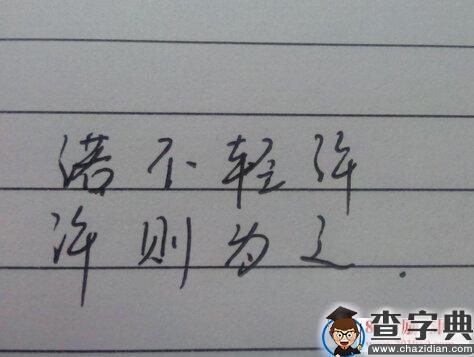 诺不轻许
许则为之.
查字典
www.chazidian.com